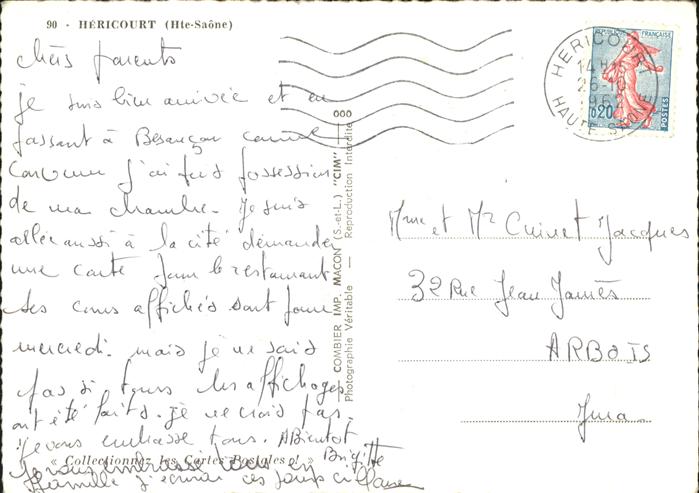 90 - HÉRICOURT (Hte-Saône)
chers parents
je suis bien arrivée et en
passant à Besançon comme
convenu j'ai pris possession
de ma chambre. Je suis
allée aussi à la cité demander
une carte pour le restaurant
des cours affichés sont pour
mercredi. mais je ne sais
pas si tous les affichages
ont été faits. je ne crois pas.
je vous embrasse tous. A Bientot
Brigitte
« Collectionnez les Cartes Postales ! »
Je vous embrasse tous en
famille j'écrirai ces jours ci
000
COMBIER IMP. MACON (S.-et-L.) "CIM"
Photographie Véritable — Reproduction Interdite
REPUBLIQUE FRANÇAISE
0,20
POSTES
HERICOURT
14H
26-10
HAUTE-SAONE
Mme et Mr Cuinet Jacques
32 Rue Jean Jaurès
ARBOIS
Jura.